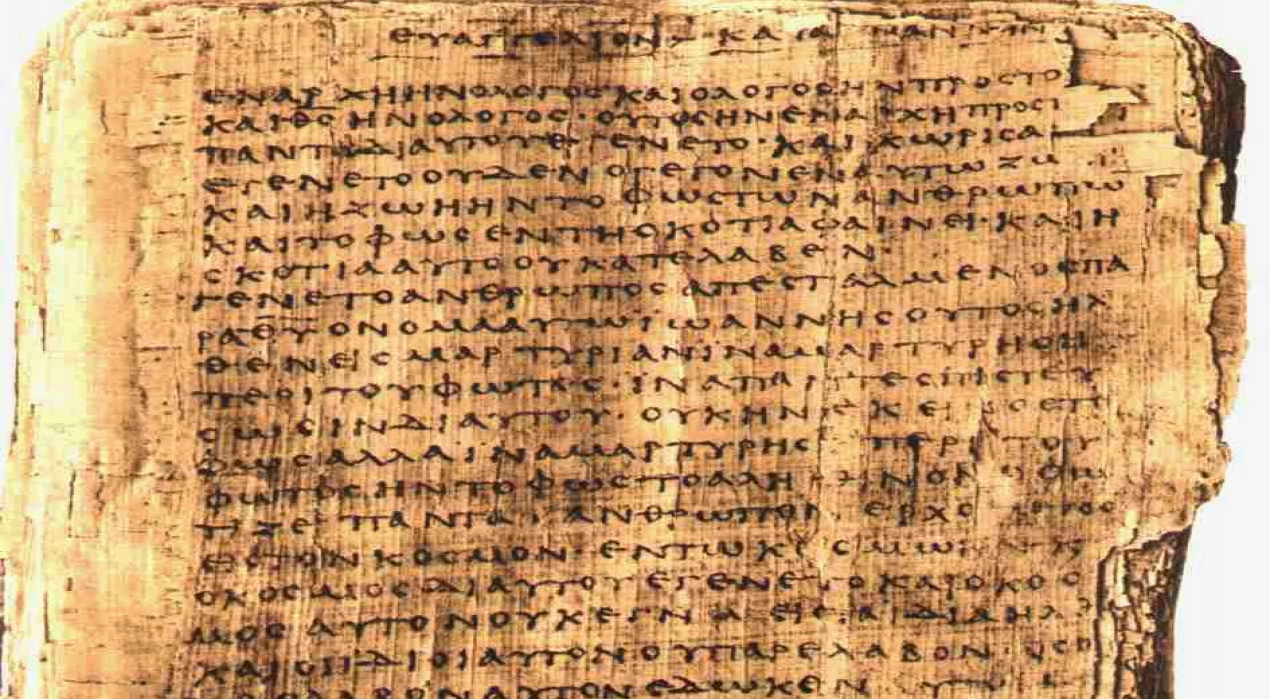 ΕΥΑΓΓΕΛΙΟΝ ΚΑΤΑ
ΕΝΑΡΧΗΗΝΟΛΟΓΟϹΚΑΙΟΛΟΓΟϹΗΝΠΡΟϹΤΟ
ΚΑΙΘ̅Ϲ̅ΗΝΟΛΟΓΟϹ·ΟΥΤΟϹΗΝΕΝΑΡΧΗΠΡΟϹΤ
ΠΑΝΤΑΔΙΑΥΤΟΥΕΓΕΝΕΤΟ·ΚΑΙΧΩΡΙϹΑ
ΕΓΕΝΕΤΟΟΥΔΕΝΟΓΕΓΟΝΕΝΑΥΤΩΖΩ
ΚΑΙΗΖΩΗΗΝΤΟΦΩϹΤΩΝΑΝΘΡΩΠΩ
ΚΑΙΤΟΦΩϹΕΝΤΗϹΚΟΤΙΑΦΑΙΝΕΙ·ΚΑΙΗ
ϹΚΟΤΙΑΑΥΤΟΟΥΚΑΤΕΛΑΒΕΝ·
ΓΕΝΕΤΟΑΝΘΡΩΠΟϹΑΠΕϹΤΑΛΜΕΝΟϹΠΑ
ΡΑΘ̅Υ̅ΟΝΟΜΑΑΥΤΩΙΩΑΝΝΗϹΟΥΤΟϹΗΛ
ΘΕΝΕΙϹΜΑΡΤΥΡΙΑΝΙΝΑΜΑΡΤΥΡΗϹΗ
ΠΕΡΙΤΟΥΦΩΤΟϹ·ΙΝΑΠΑΝΤΕϹΠΙϹΤΕΥ
ϹΩϹΙΝΔΙΑΥΤΟΥ·ΟΥΚΗΝΕΚΕΙΝΟϹΤΟ
ΦΩϹΑΛΛΑΙΝΑΜΑΡΤΥΡΗϹ ΠΕΡΙΤΟΥ
ΦΩΤΟϹΗΝΤΟΦΩϹΤΟΑΛΗΘΙΝΟΝΟΦΩ
ΤΙΖΕΙΠΑΝΤΑΑΝΘΡΩΠΟΝΕΡΧΟ
ΕΙϹΤΟΝΚΟϹΜΟΝ·ΕΝΤΩΚΟϹΜΩ
ΟΚΟϹΜΟϹΔΙΑΥΤΟΥΕΓΕΝΕΤΟΚΑΙΟΚΟϹ
ΜΟϹΑΥΤΟΝΟΥΚΕΓΝΩΕΙϹΤΑΙΔΙΑΗΛΘ
ΚΑΙΟΙΙΔΙΟΙΑΥΤΟΝΟΥΠΑΡΕΛΑΒΟΝ·ΟϹΟ
ΕΛΑΒΟΝΑΥΤΟΝΕΔΩΚΕΝ